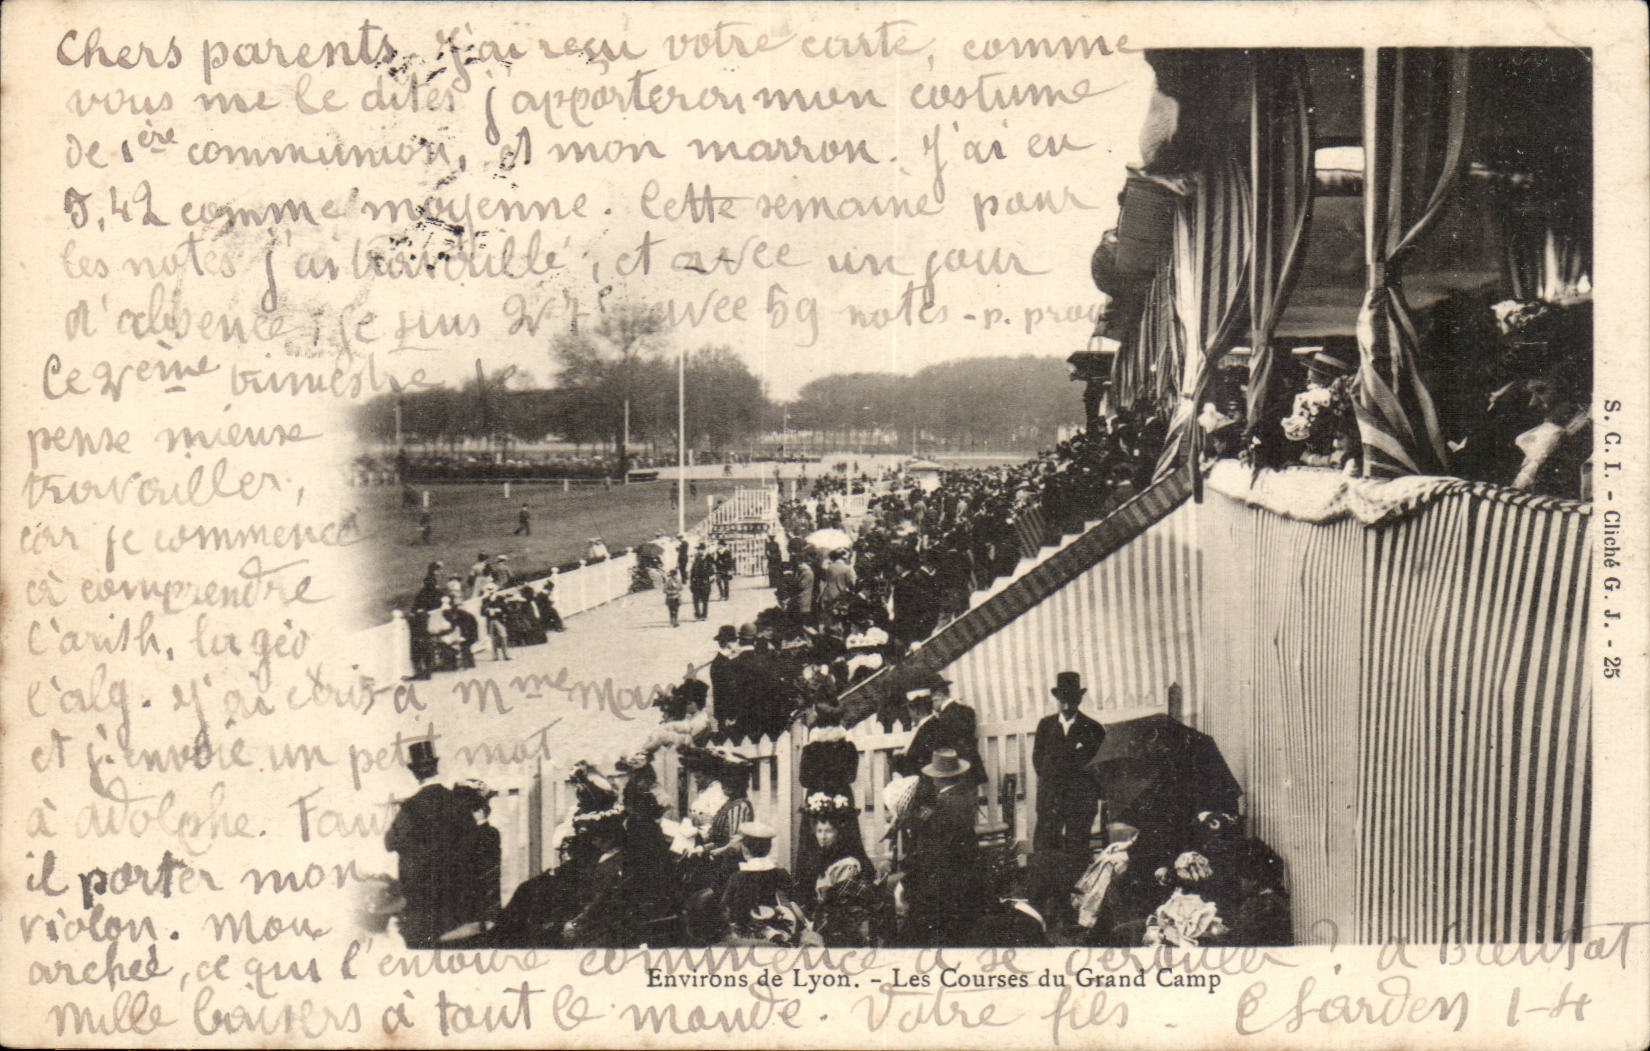 Chers parents. J'ai reçu votre carte, comme
vous me le dites j'apporterai mon costume
de 1ère communion, et mon marron. J'ai eu
5,42 comme moyenne. Cette semaine pour
les notes j'ai travaillé, et avec un jour
d'absence, je suis 2e avec 59 notes - p.
Ce 2ème trimestre je
pense mieux
travailler,
car je commence
à comprendre
l'arith, la géo
l'alg. J'ai écris à Mme
et j'envoie un petit mot
à Adolphe. Faut
il porter mon
violon. Mon
archet, ce qui l'entoure commence à se dérouler? à Bientôt
Mille baisers à tout le monde. Votre fils. 1-4
Environs de Lyon. - Les Courses du Grand Camp
S. C. I. - Cliché G. J. - 25